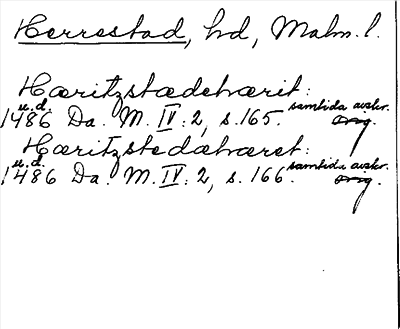 Herrestad, hd, Malm. l.
Hæritzstædehærit:
1486 u.d. Da. M. IV: 2, s. 165. samtida avskr. orig.
Hæritzstedæhæret:
1486 u.d. Da. M. IV: 2, s. 166. samtida avskr. orig.